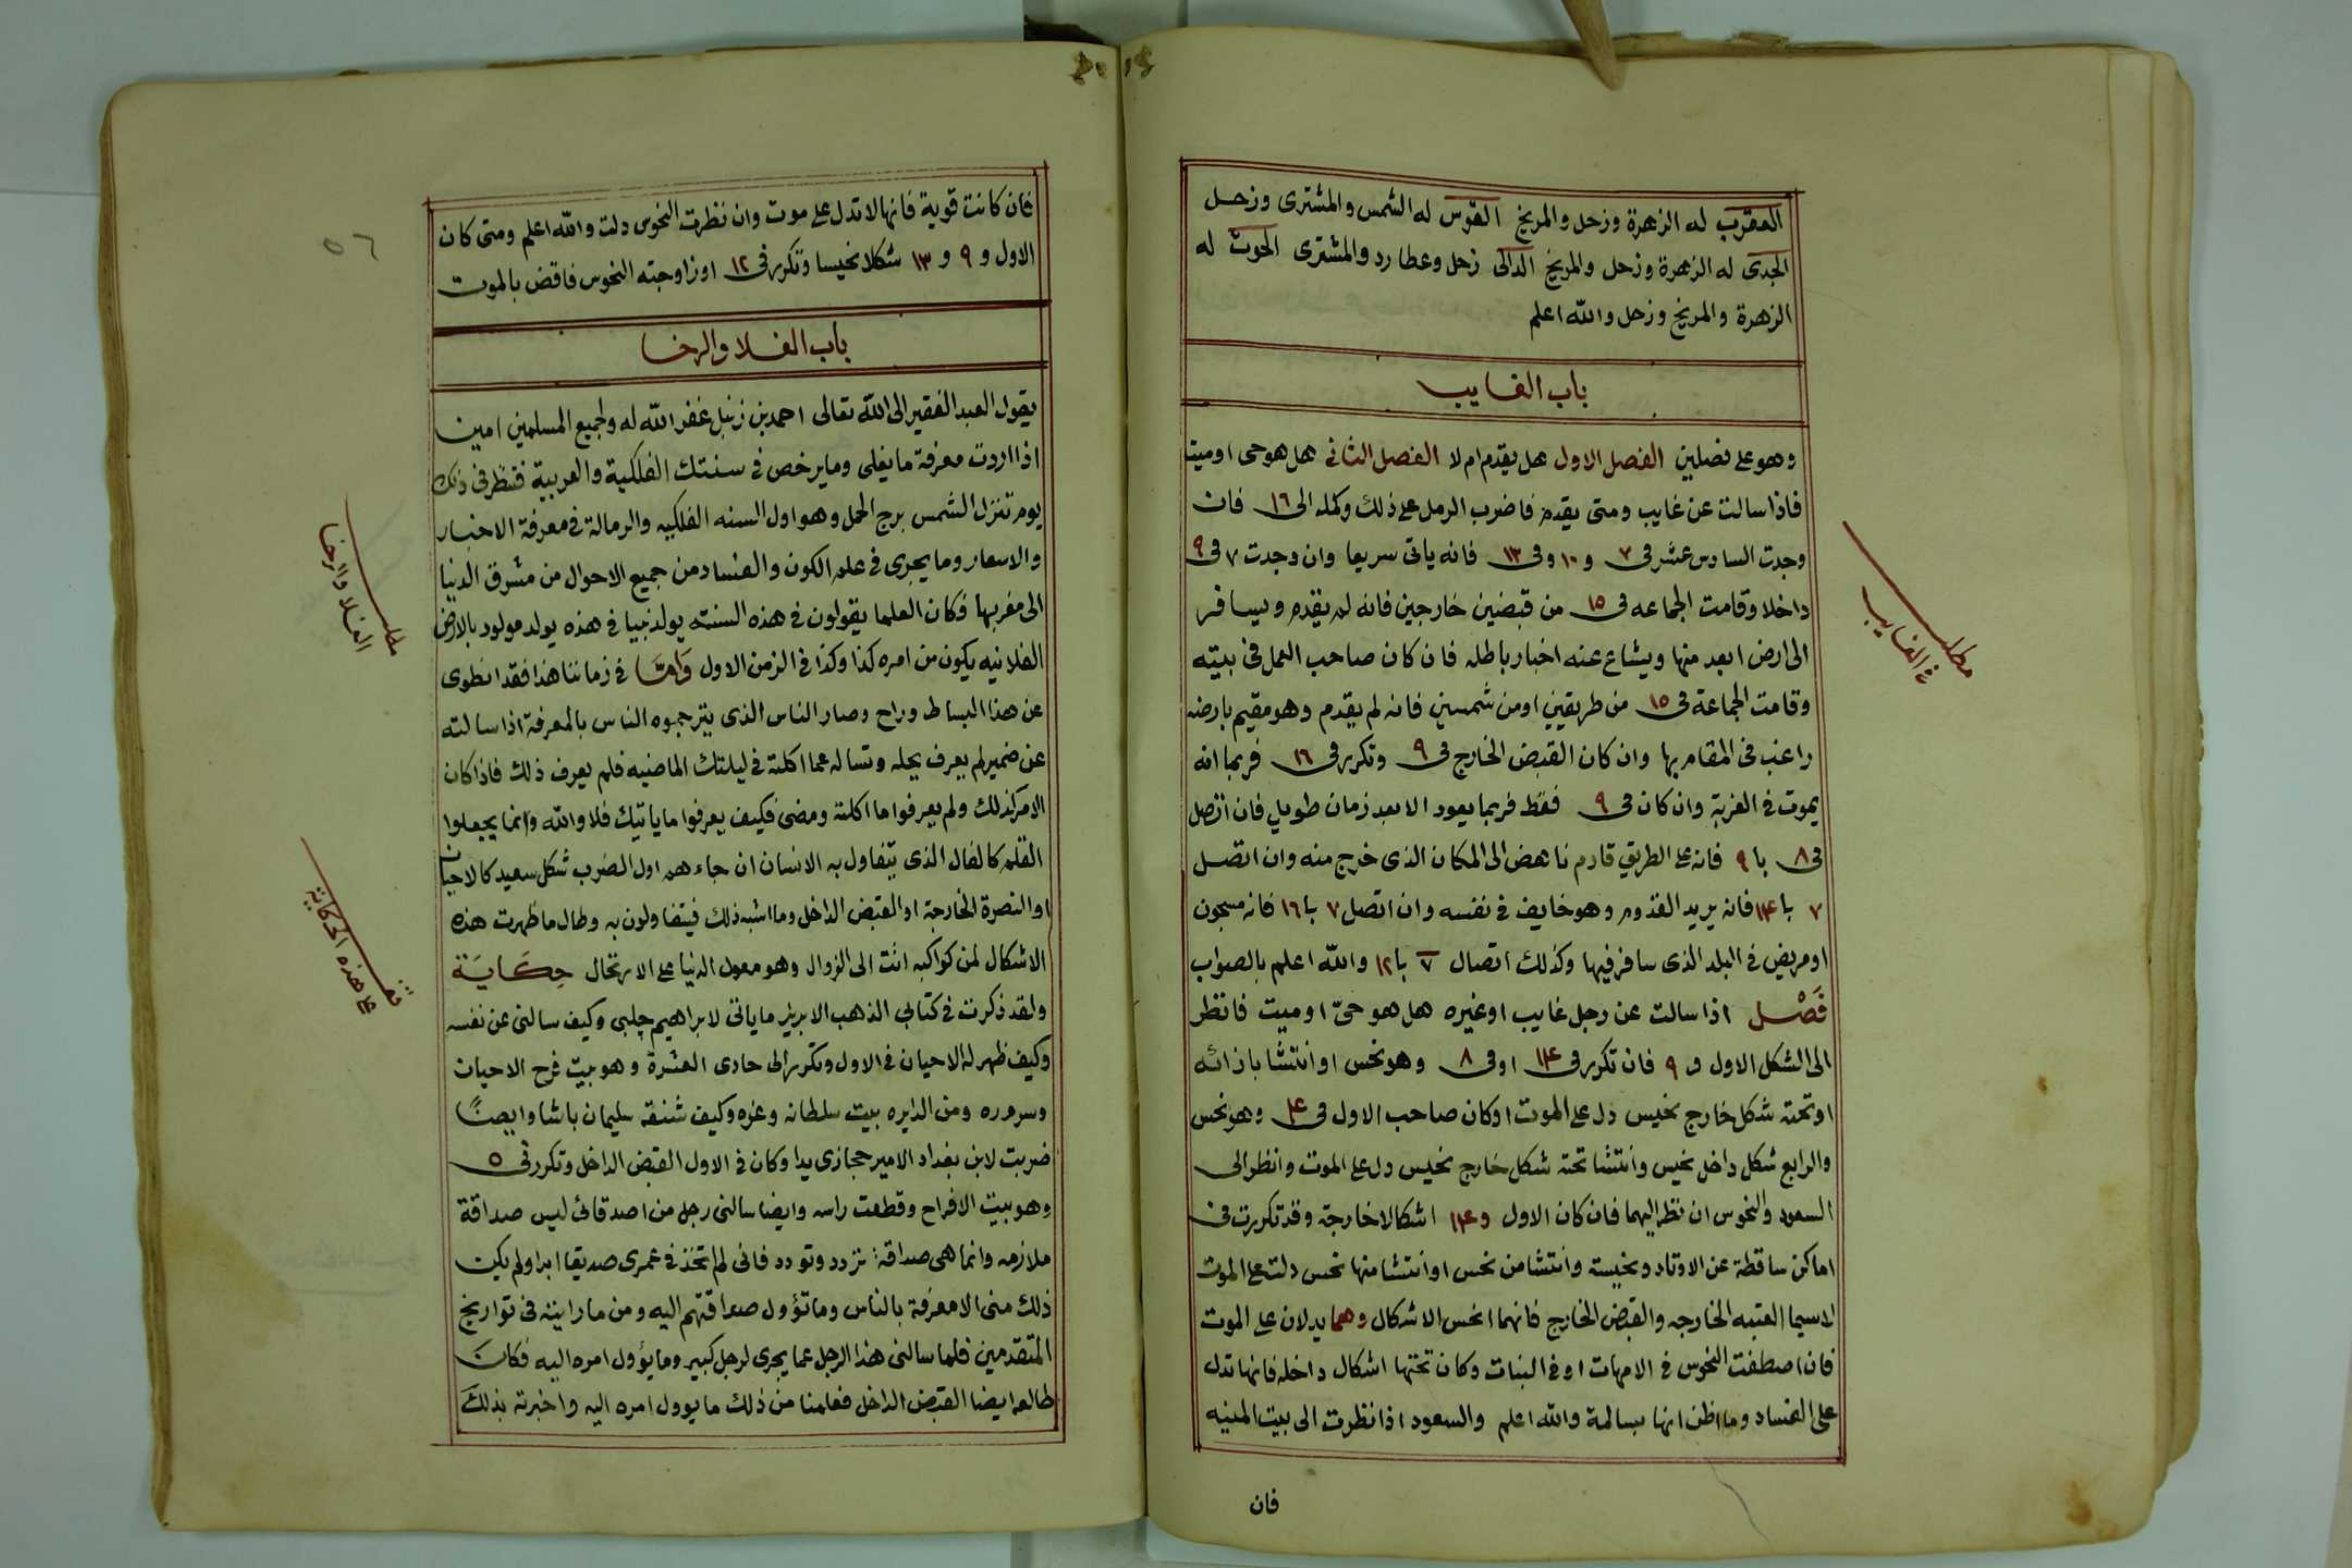 العقرب له الزهرة وزحل والمريخ القوس له الشمس والمشترى وزحل
الجدى له الزهرة وزحل والمريخ الدالى زحل وعطارد والمشترى الحوت له
الزهرة والمريخ وزحل والله اعلم
باب الغايب
وهو على فصلين الفصل الاول هل يقدم ام لا الفصل الثانى هل هو حى او ميت
فاذا سالت عن غايب ومتى يقدم فاضرب الرمل على ذلك وكمله الى ١٦ فان
وجدت السادس عشر فى ٧ و ١٠ وفى ١٣ فانه ياتى سريعا وان وجدت ٧ فى ٩
داخلا وقامت الجماعه فى ١٥ من قبضين خارجين فانه لم يقدم ويسافر
الى ارض ابعد منها ويشاع عنه اخبار باطله فان كان صاحب العمل فى بيته
وقامت الجماعة فى ١٥ من طريقين او من شمسين فانه لم يقدم وهو مقيم بارضه
راغب فى المقام بها وان كان القبض الخارج فى ٩ وتكرر فى ١٦ فربما انه
يموت فى الغربة وان كان فى ٩ فقط فربما يعود الا بعد زمان طويل فان اتصل
فى ٨ با ٩ فانه على الطريق قادم ناهض الى المكان الذى خرج منه وان اتصل
٧ با ١٤ فانه يريد القدوم وهو خايف فى نفسه وان اتصل ٧ با ١٦ فانه مسجون
او مريض فى البلد الذى سافر فيها وكذلك اتصال ٧ با ١٢ والله اعلم بالصواب
فَصْل اذا سالت عن رجل غايب او غيره هل هو حىّ او ميت فانظر
الى الشكل الاول و ٩ فان تكرر فى ١٤ او فى ٨ وهو نحس او انتشا باذائه
او تحته شكل خارج نحيس دل على الموت او كان صاحب الاول فى ٤ وهو نحس
والرابع شكل داخل نحيس وانتشا تحته شكل خارج نحيس دل على الموت وانظر الى
السعود والنحوس ان نظر اليهما فان كان الاول و ١٤ اشكالا خارجة وقد تكررت فى
اماكن ساقطة عن الاوتاد ونحيسه وانتشا من نحس او انتشا منها نحس دلت على الموت
لاسيما العتبه الخارجه والقبض الخارج فانهما انحس الاشكال وهما يدلان على الموت
فان اصطفت النحوس فى الامهات او فى البنات وكان تحتها اشكال داخله فانها تدل
على الفساد وما اظن انها بسالمة والله اعلم والسعود اذا نظرت الى بيت المنيه
فان
مطلب
فى الغايب
فان كانت قوية فانها لا تدل على موت وان نظرت النحوس دلت والله اعلم ومتى كان
الاول و ٩ و ١٣ شكلا نحيسا وتكرر فى ١٢ او زاوجته النحوس فاقض بالموت
باب الغلا والرخا
يقول العبد الفقير الى الله تعالى احمد بن زنبل غفر الله له ولجميع المسلمين امين
اذا اردت معرفة ما يغلى وما يرخص فى سنتك الفلكية والعربية فتنظر فى ذلك
يوم تنزل الشمس برج الحمل وهو اول السنه الفلكيه والرمالة فى معرفة الاخبار
والاسعار وما يجرى فى علم الكون والفساد من جميع الاحوال من مشرق الدنيا
الى مغربها فكان العلما يقولون فى هذه السنته يولد نبيا فى هذه يولد مولود بالارض
الفلانيه يكون من امره كذا وكذا فى الزمن الاول وَامّا فى زماننا هذا فقد انطوى
عن هذا البساط وراح وصار الناس الذى يترجموه الناس بالمعرفة اذا سالته
عن ضمير لم يعرف يحله وتساله عما اكلته فى ليلتك الماضيه فلم يعرف ذلك فاذا كان
الامر كذلك ولم يعرفوا ما اكلته ومضى فكيف يعرفوا ما ياتيك فلا والله وانما يجعلوا
القلم كالفال الذى يتفاول به الانسان ان جاءهم اول الضرب شكل سعيد كالاحيان
او النصرة الخارجة او القبض الداخل وما اشبه ذلك فيتفاولون به وطال ما ظهرت هذه
الاشكال لمن كواكبه اتت الى الزوال وهو معول الدنيا على الارتحال حِكَايَة
ولقد ذكرت فى كتابى الذهب الابريز ما ياتى لابراهيم چلبى وكيف سالنى عن نفسه
وكيف ظهر له الاحيان فى الاول وتكرر الى حادى العشرة وهو بيت فرح الاحيان
وسروره ومن الدايره بيت سلطانه وعزه وكيف شنقه سليمان باشا وايضًا
ضربت لابن بغداد الامير حجازى يدا وكان فى الاول القبض الداخل وتكرر فى ٥
وهو بيت الافراح وقطعت راسه وايضا سالنى رجل من اصدقائى ليس صداقة
ملازمه وانما هى صداقة تردد وتودد فانى لم اتخذ فى عمرى صديقا ابدا ولم يكن
ذلك منى الا معرفة بالناس وما تؤول صداقتهم اليه ومن ما راينه فى تواريخ
المتقدمين فلما سالنى هذا الرجل عما يجرى لرجل كبير وما يؤول امره اليه فكان
طالعه ايضا القبض الداخل فعلمنا من ذلك ما يوول امره اليه واخبرته بذلك
الغلا والرخا
على هذه الحكاية